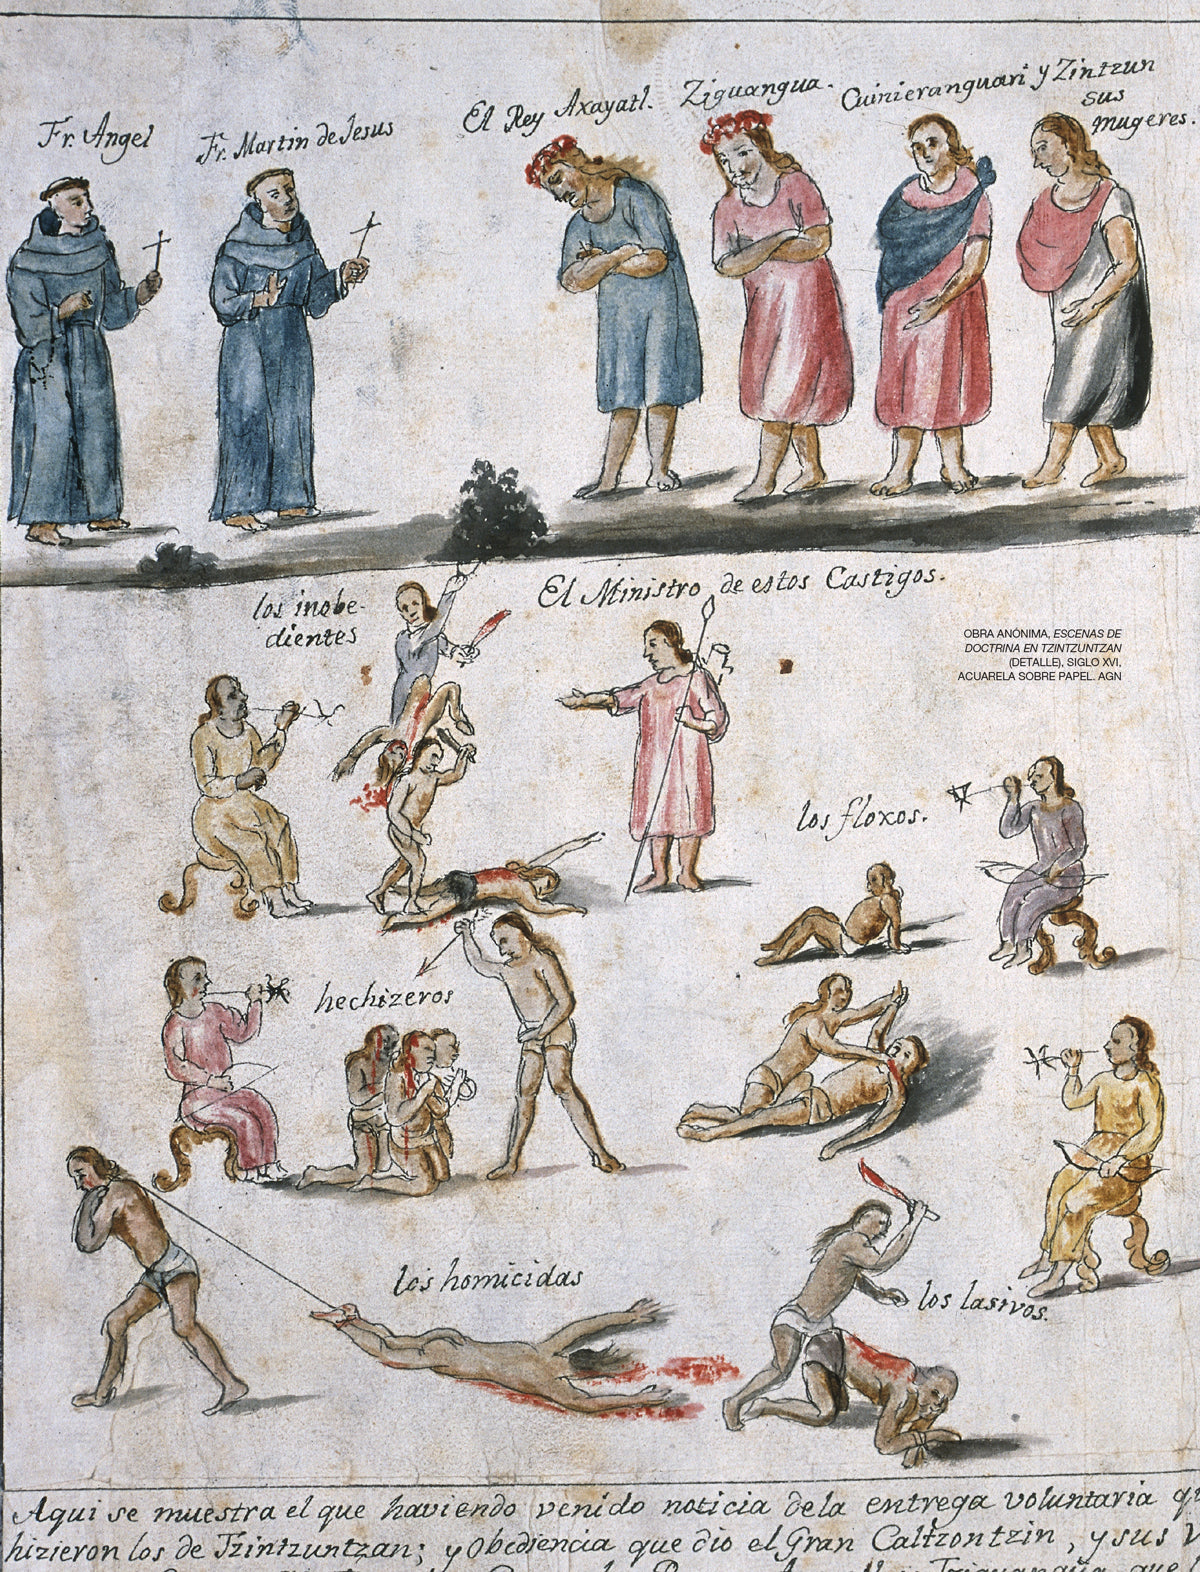 Fr. Angel
Fr. Martin de Jesus
El Rey Axayatl.
Ziguangua.
Cuinieranguari y Zintzun
sus
mugeres.
los inobe-
dientes
El Ministro de estos Castigos.
OBRA ANÓNIMA, ESCENAS DE
DOCTRINA EN TZINTZUNTZAN
(DETALLE), SIGLO XVI,
ACUARELA SOBRE PAPEL. AGN
los floxos.
hechizeros
los homicidas
los lasivos.
Aqui se muestra el que haviendo venido noticia dela entrega voluntaria
hizieron los de Tzintzuntzan; y Obediencia que dio el Gran Caltzontzin, y sus